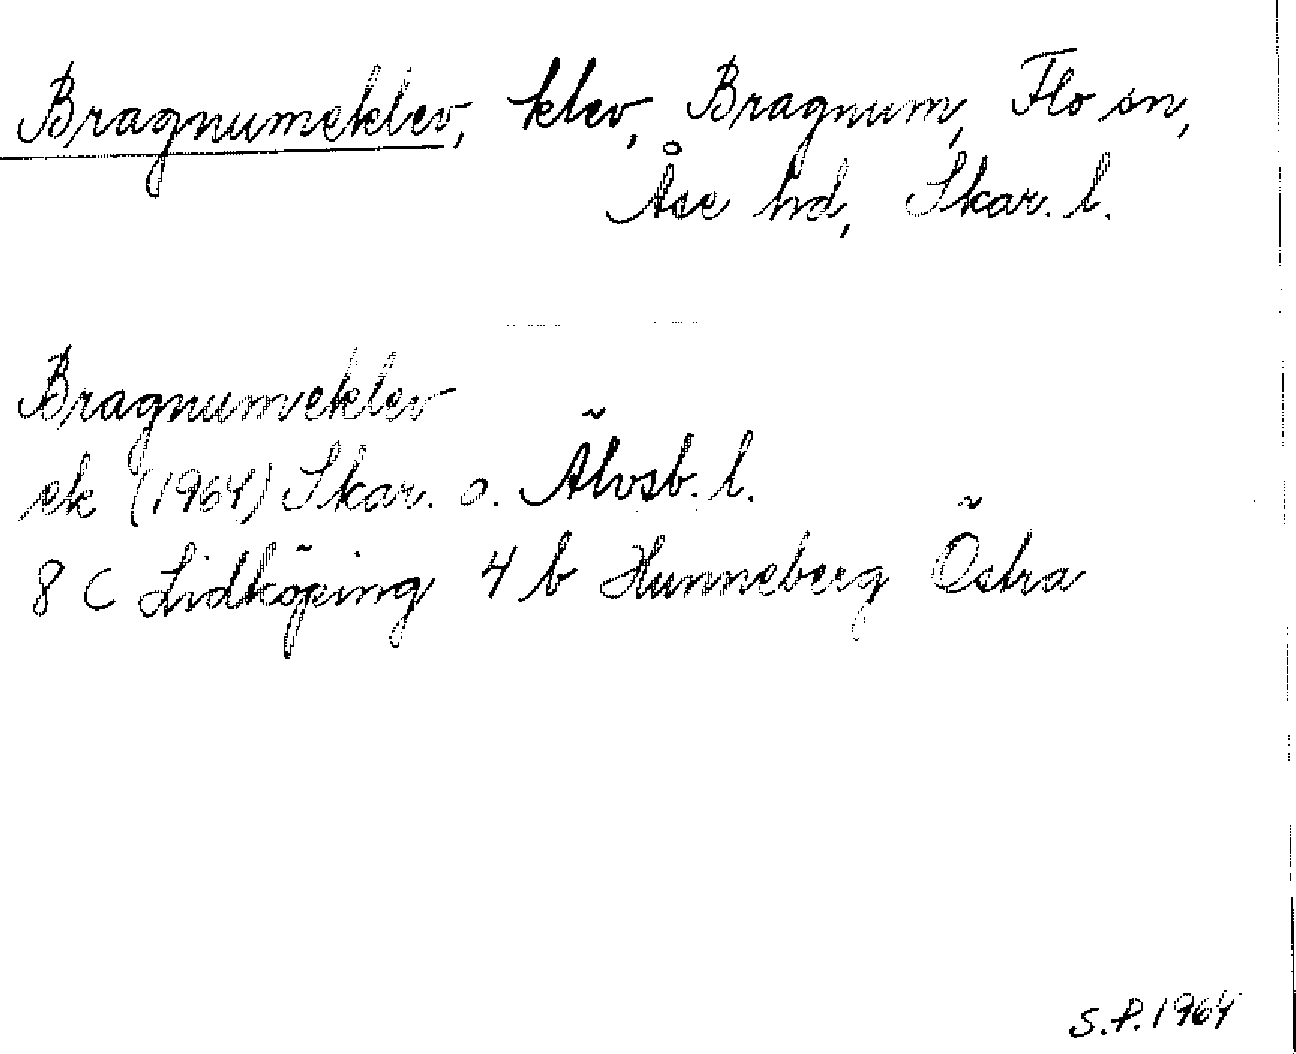 Bragnumeklev, klev, Bragnum, Flo sn,
Åse hd, Skar. l.
Bragnumeklev
ek (1964) Skar. o. Älvsb. l.
8 C Lidköping 4 b Hunneberg Östra
S.P. 1964